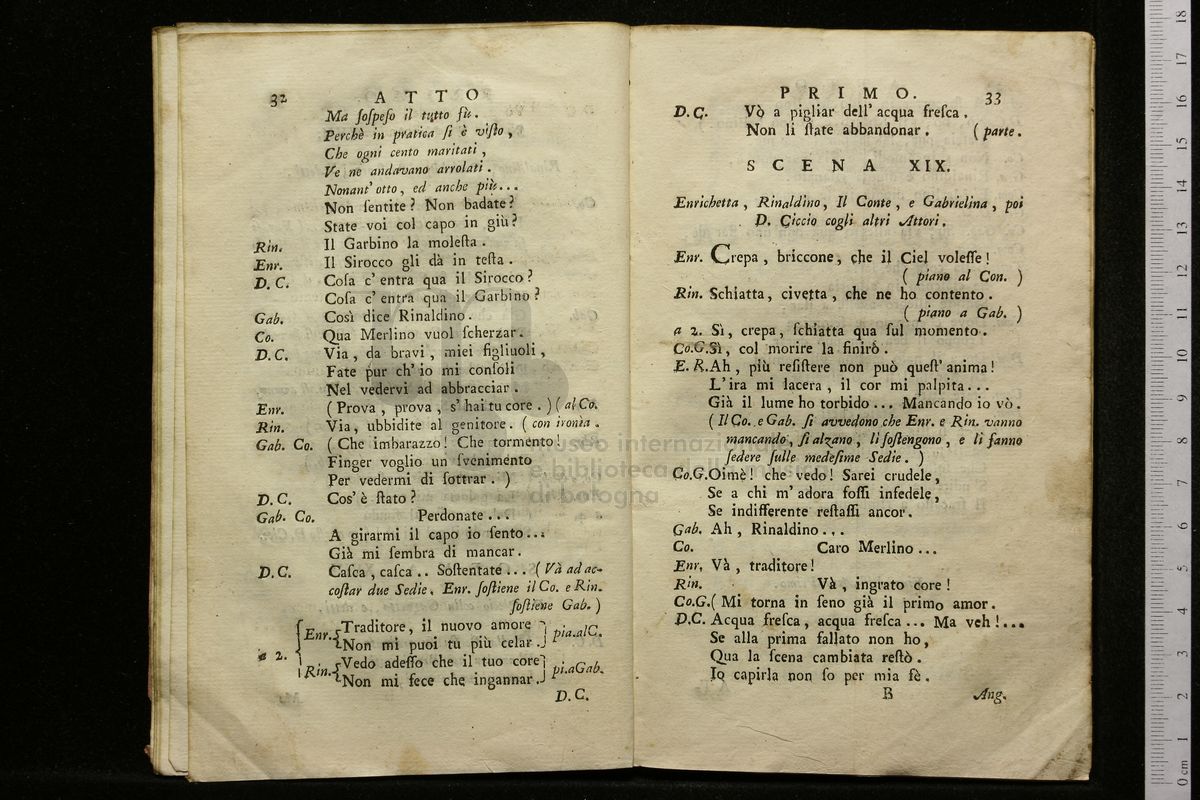 32 ATTO
Ma ſoſpeſo il tutto fù.
Perchè in pratica ſi è viſto,
Che ogni cento maritati,
Ve ne andavano arrolati.
Nonant' otto, ed anche più...
Non ſentite? Non badate?
State voi col capo in giù?
Rin. Il Garbino la moleſta.
Enr. Il Sirocco gli dà in teſta.
D. C. Coſa c' entra qua il Sirocco?
Coſa c' entra qua il Garbino?
Gab. Così dice Rinaldino.
Co. Qua Merlino vuol ſcherzar.
D. C. Via, da bravi, miei figliuoli,
Fate pur ch' io mi conſoli
Nel vedervi ad abbracciar.
Enr. (Prova, prova, s' hai tu core.) (al Co.
Rin. Via, ubbidite al genitore. (con ironia.
Gab. Co. (Che imbarazzo! Che tormento!
Finger voglio un ſvenimento
Per vedermi di ſottrar.)
D. C. Cos' è ſtato?
Gab. Co. Perdonate...
A girarmi il capo io ſento...
Già mi ſembra di mancar.
D. C. Caſca, caſca.. Soſtentate... (Và ad ac-
coſtar due Sedie. Enr. ſoſtiene il Co. e Rin.
ſoſtiene Gab.)
a 2. Enr. Traditore, il nuovo amore
Non mi puoi tu più celar. pia.al C.
Rin. Vedo adeſſo che il tuo core
Non mi fece che ingannar. pi.a Gab.
D. C.
PRIMO. 33
D. C. Vò a pigliar dell' acqua freſca.
Non li ſtate abbandonar. (parte.
SCENA XIX.
Enrichetta, Rinaldino, Il Conte, e Gabrielina, poi
D. Ciccio cogli altri Attori.
Enr. Crepa, briccone, che il Ciel voleſſe!
(piano al Con.)
Rin. Schiatta, civetta, che ne ho contento.
(piano a Gab.)
a 2. Sì, crepa, ſchiatta qua ſul momento.
Co.G. Sì, col morire la finirò.
E. R. Ah, più reſiſtere non può queſt' anima!
L' ira mi lacera, il cor mi palpita...
Già il lume ho torbido... Mancando io vò.
(Il Co. e Gab. ſi avvedono che Enr. e Rin. vanno
mancando, ſi alzano, li ſoſtengono, e li fanno
ſedere ſulle medeſime Sedie.)
Co.G. Oimè! che vedo! Sarei crudele,
Se a chi m' adora foſſi infedele,
Se indifferente reſtaſſi ancor.
Gab. Ah, Rinaldino...
Co. Caro Merlino...
Enr. Và, traditore!
Rin. Và, ingrato core!
Co.G. (Mi torna in ſeno già il primo amor.
D.C. Acqua freſca, acqua freſca... Ma veh!...
Se alla prima fallato non ho,
Qua la ſcena cambiata reſtò.
Io capirla non ſo per mia fè.
B Ang.
museo internazionale
e biblioteca della musica
di bologna
0 cm 1 2 3 4 5 6 7 8 9 10 11 12 13 14 15 16 17 18